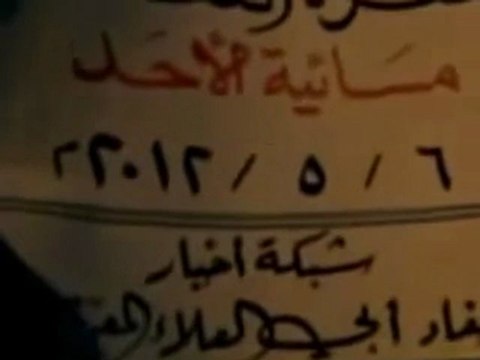 مسائية الأحد
٦ / ٥ / ٢٠١٢م
شبكة اخبار
أبي العلاء